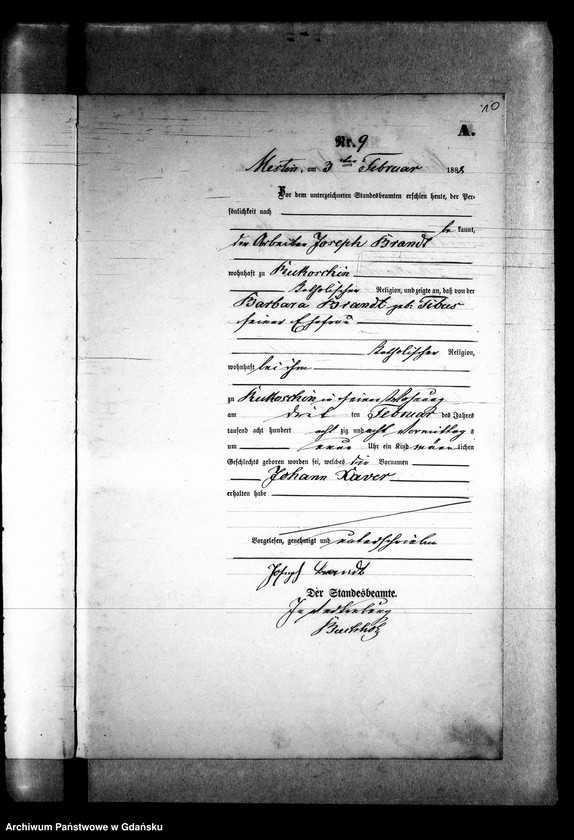 10
A.
Nr. 9
Mestin, am 3ten Februar 1888
Vor dem unterzeichneten Standesbeamten erschien heute, der Per-
sönlichkeit nach
bekannt,
der Arbeiter Joseph Brandt
wohnhaft zu Kukoschin
katholischer Religion, und zeigte an, daß von der
Barbara Brandt geb. Tibus
seiner Ehefrau
katholischer Religion,
wohnhaft bei ihm
zu Kukoschin in seiner Wohnung
am drit ten Februar des Jahres
tausend acht hundert acht zig und acht Vormittag s
um neun Uhr ein Kind männ lichen
Geschlechts geboren worden sei, welches die Vornamen
Johann Xaver
erhalten habe
Vorgelesen, genehmigt und unterschrieben
Joseph Brandt
Der Standesbeamte.
In Vertretung
Archiwum Państwowe w Gdańsku